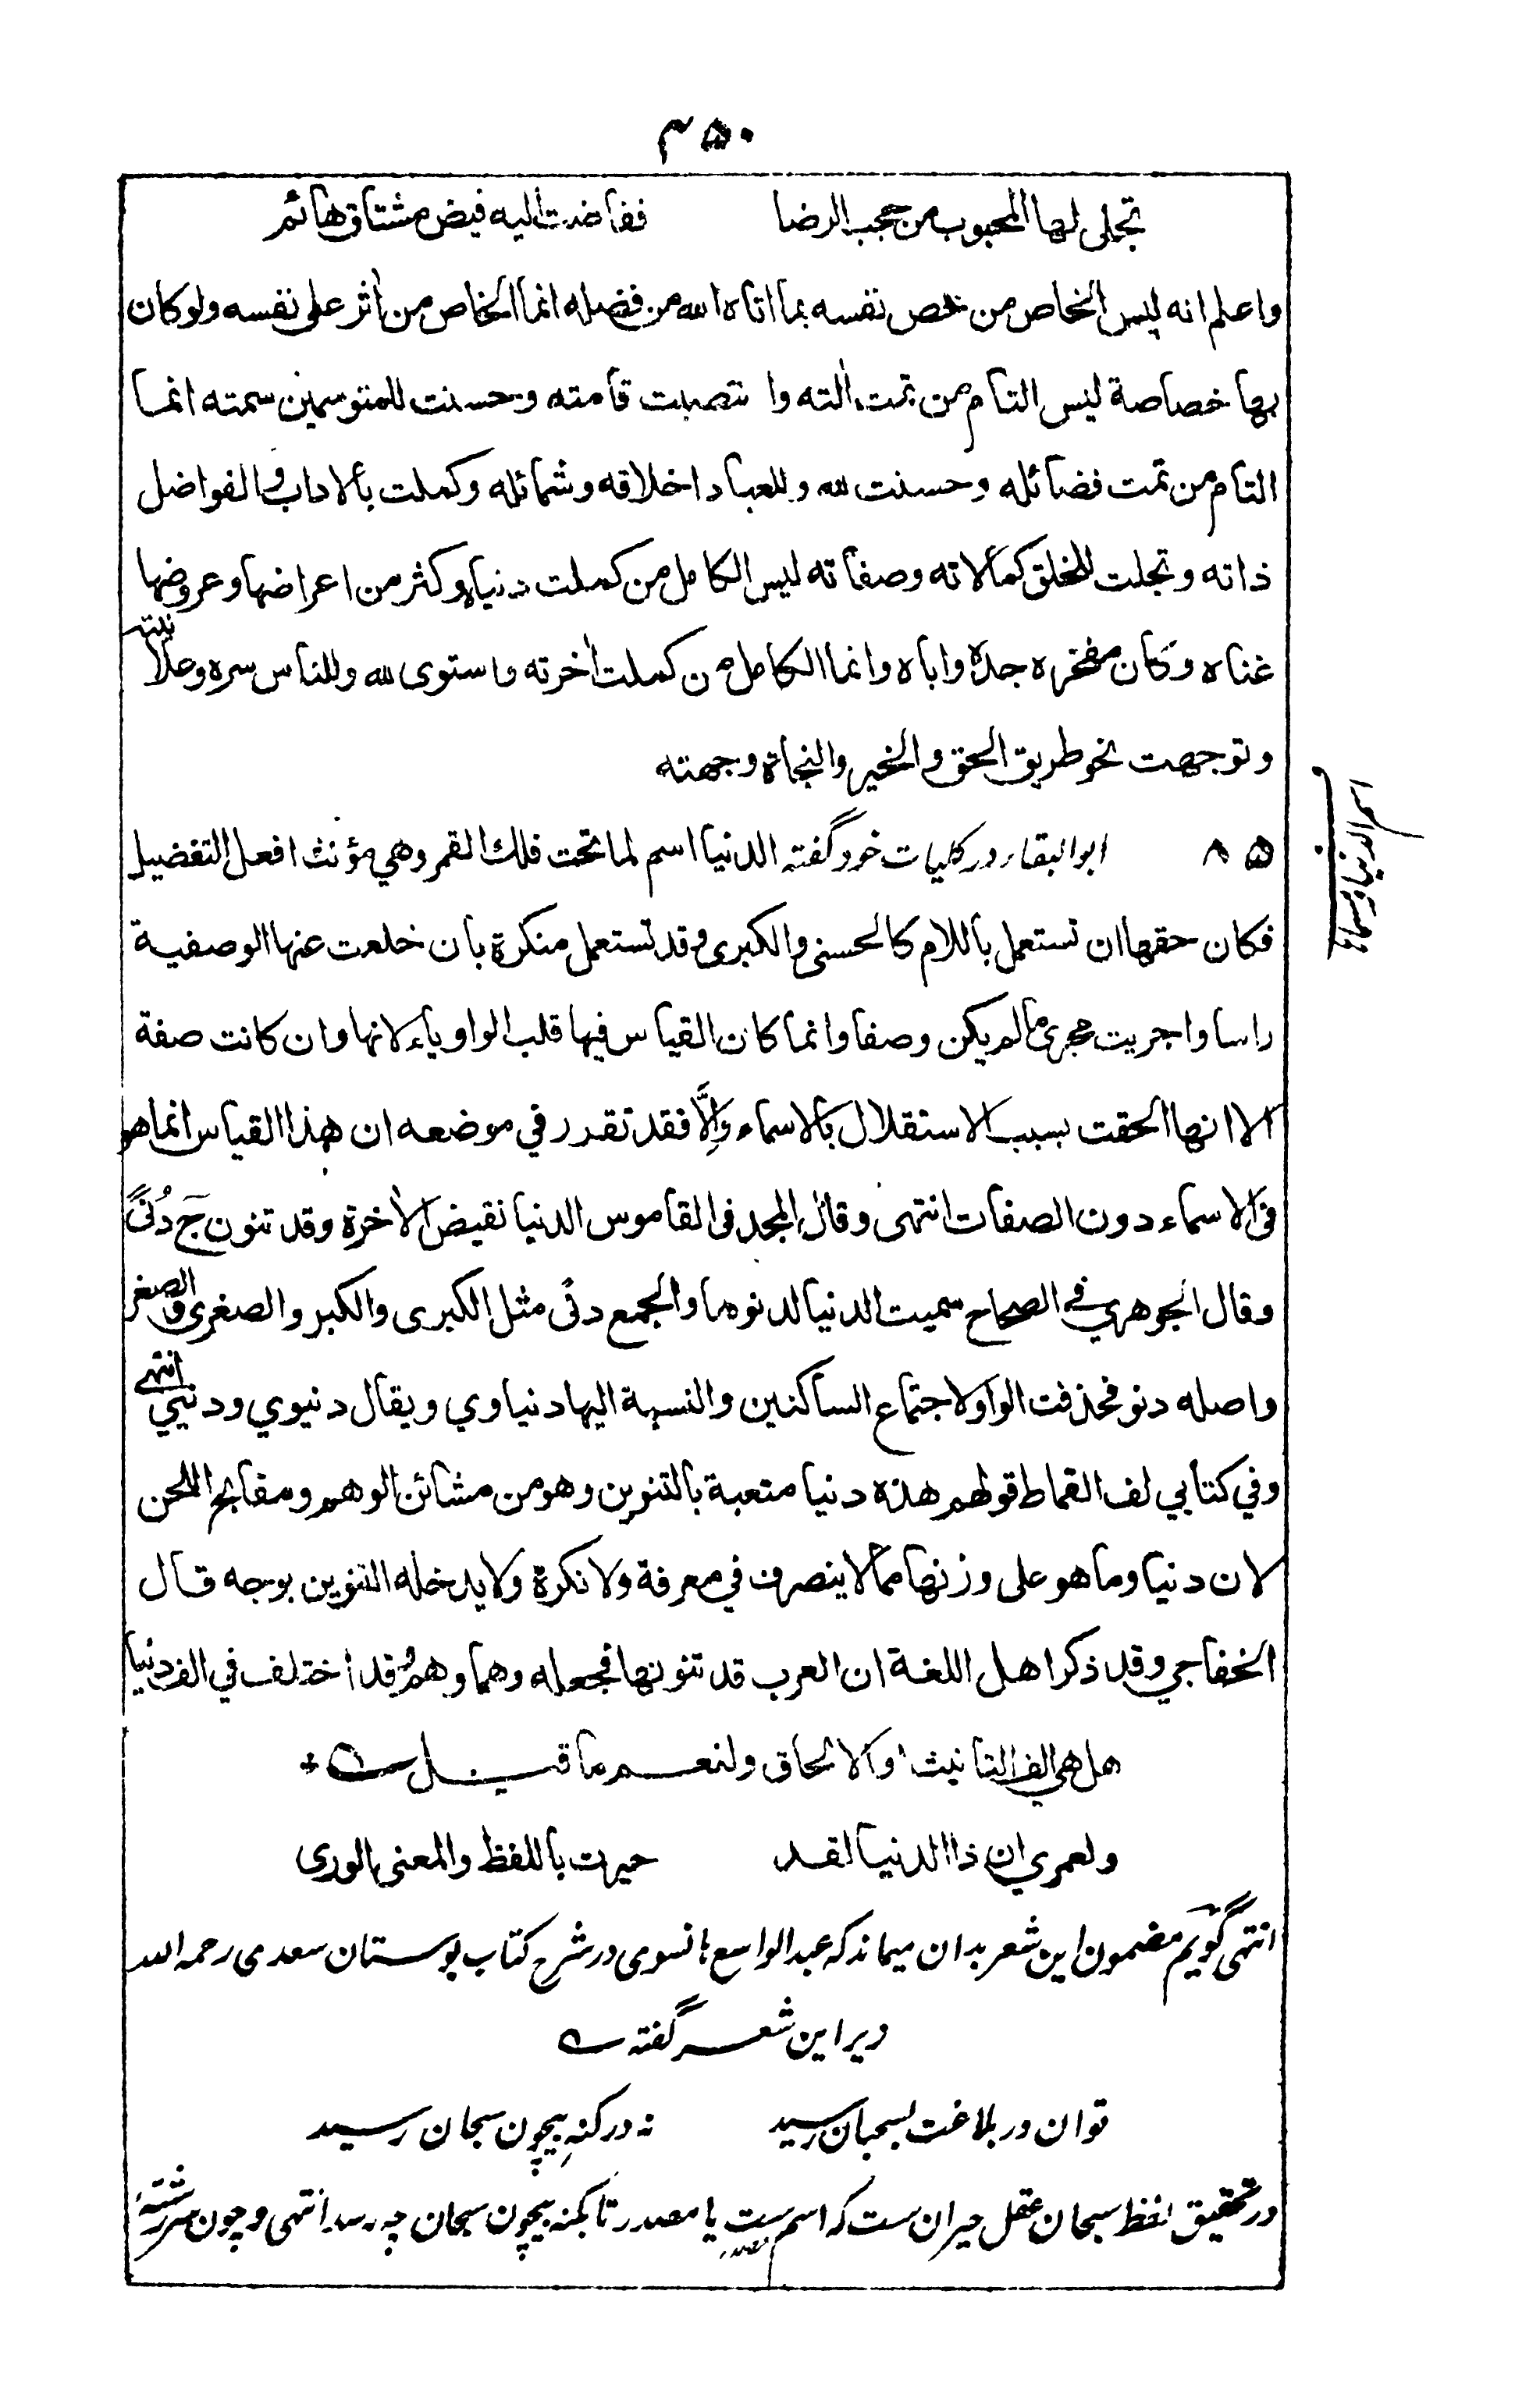 ۴۵۰
تجلى لها المحبوب من حجب الرضا ففاضت اليه فيض مشتاق هائم
واعلم انه ليس الخاص من خص نفسه بما اتاه الله من فضله انما الخاص من اٰثر على نفسه ولو كان
بها خصاصة ليس التام من تمت اٰلته وانتصبت قامته وحسنت للمتوسمين سمته انما
التام من تمت فضائله وحسنت لله وللعباد اخلاقه وشمائله وكملت بالاداب والفواضل
ذاته وتجلت للخلق كمالاته وصفاته ليس الكامل من كملت دنياه وكثر من اعراضها وعروضها
غناه وكان مفخره جده واباه وانما الكامل من كملت اٰخرته واستوى لله وللناس سره وعلانيته
وتوجهت نحو طريق الحق والخير والنجاة وجهته
۵۸ ابو البقاء در كليات خود گفته الدنيا اسم لما تحت فلك القمر وهي مؤنث افعل التفضيل
فكان حقها ان تستعمل باللام كالحسنى والكبرى وقد تستعمل منكرة بان خلعت عنها الوصفية
راسا واجريت مجرى ما لم يكن وصفا وانما كان القياس فيها قلب الواو ياء لانها وان كانت صفة
الا انها الحقت بسبب الاستقلال بالاسماء والَّا فقد تقرر في موضعه ان هذا القياس انما هو
فى الاسماء دون الصفات انتهى وقال المجد فى القاموس الدنيا نقيض الاٰخرة وقد تنون ج دُنًى
وقال الجوهري في الصحاح سميت الدنيا لدنوها والجمع دنًى مثل الكبرى والكبر والصغرى والصغر
واصله دنو فحذفت الواو لاجتماع الساكنين والنسبة اليها دنياوي ويقال دنيوي ودنيي انتهى
وفي كتابي لف القماط قولهم هذه دنيا متعبة بالتنوين وهو من مشائن الوهم ومقابح اللحن
لان دنيا وما هو على وزنها مما لا ينصرف في معرفة ولا نكرة ولا يدخله التنوين بوجه قال
الخفاجي وقد ذكر اهل اللغة ان العرب قد تنونها فجعله وهما وهمٌ وقد اختلف في الف دنيا
هل هي الف التانيث او الالحاق ولنعم ما قيل
ولعمري ان ذا الدنيا لقد حيرت باللفظ والمعنى الورى
انتهى گويم مضمون اين شعر بدان ميماند كه عبد الواسع هانسوى در شرح كتاب بوستان سعدى رحمه الله
زير اين شعر گفته
توان در بلاغت بسحبان رسيد نه در كنهِ بيچون سبحان رسيد
در تحقيق لفظ سبحان عقل حيران ست كه اسم ست يا مصدر تا بكنه بيچون سبحان چه رسد انتهى و چون سررشتهٔ